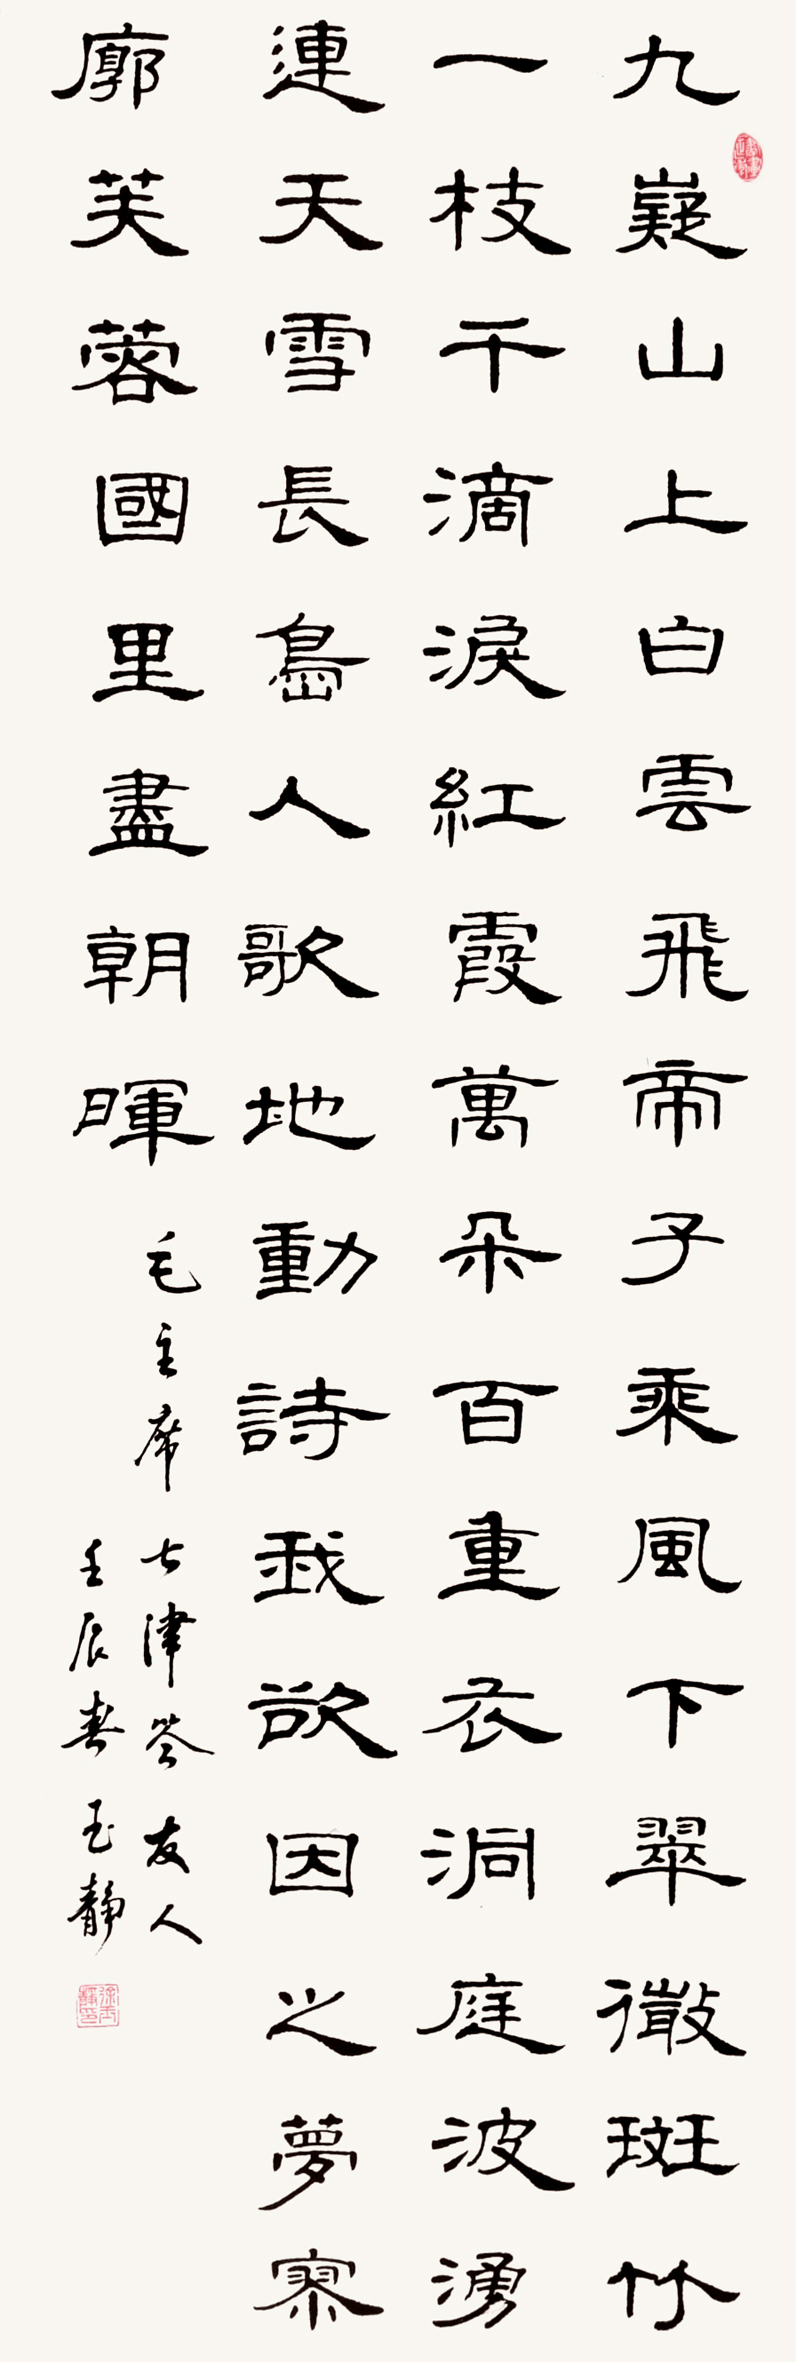 九嶷山上白雲飛帝子乘風下翠微斑竹
一枝千滴淚紅霞萬朵百重衣洞庭波湧
連天雪長島人歌地動詩我欲因之夢寥
廓芙蓉國里盡朝暉
毛主席七律答友人
壬辰春玉靜